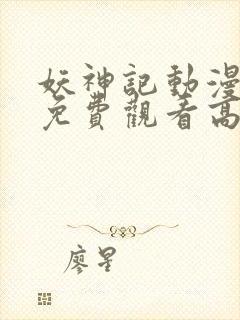 妖神記動漫
免費觀看高
廖星